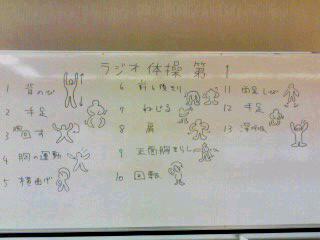 ラジオ体操 第1
1 背のび
2 手足
3 腕回す
4 胸の運動
5 横曲げ
6 前と後そり
7 ねじる
8 肩
9 正面胸そらし
10 回転
11 両足とび
12 手足
13 深呼吸